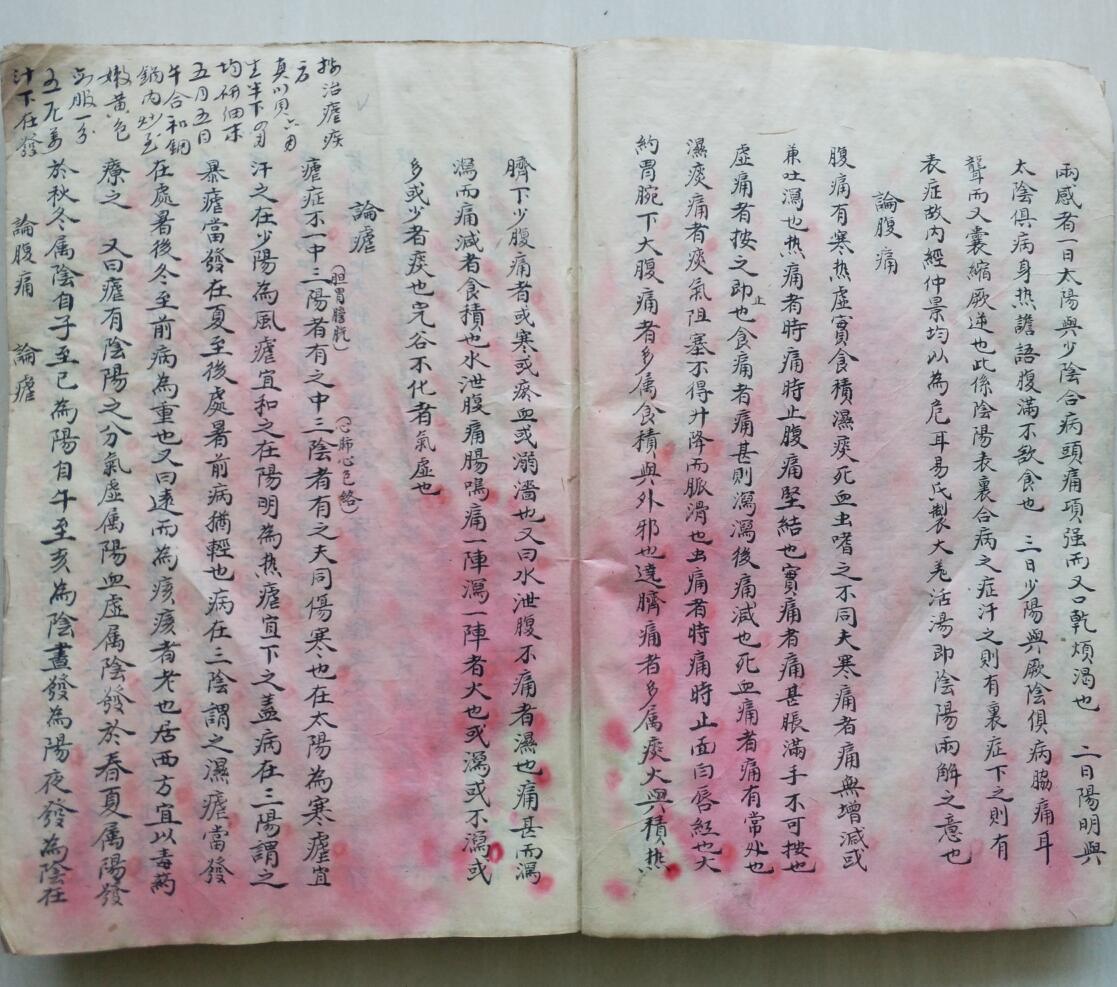 兩感者一日太陽與少陰合病頭痛項强而又口乾煩渴也　二日陽明與
太陰俱病身热譫語腹滿不欲食也　三日少陽與厥陰俱病脇痛耳
聾而又囊縮厥逆也此係陰陽表裏合病之症汗之則有裏症下之則有
表症故内經仲景均以為危耳易氏製大羗活湯即陰陽兩解之意也
論腹痛
腹痛有寒热虛實食積濕痰死血虫嗜之不同夫寒痛者痛無增減或
兼吐瀉也热痛者時痛時止腹痛堅結也實痛者痛甚脹滿手不可按也
虛痛者按之即止也食痛者痛甚則瀉瀉後痛减也死血痛者痛有常处也
濕痰痛者痰氣阻塞不得升降而脈滑也虫痛者時痛時止面白唇紅也大
約胃腕下大腹痛者多属食積與外邪也遶臍痛者多属痰火與積热
臍下少腹痛者或寒或瘀血或溺濇也又曰水泄腹不痛者濕也痛甚而瀉
瀉而痛減者食積也水泄腹痛腸鳴痛一陣瀉一陣者火也或瀉或不瀉或
多或少者痰也完谷不化者氣虛也
論瘧
瘧症不一中三陽者有之中三陰者有之夫同傷寒也在太陽為寒瘧宜
(胆胃膽胱)
(心肺心包絡)
汗之在少陽為風瘧宜和之在陽明為热瘧宜下之盖病在三陽謂之
暴瘧當發在夏至後處暑前病猶輕也病在三陰謂之濕瘧當發
在處暑後冬至前病為重也又曰遠而為痎痎者老也居西方宜以毒药
療之　又曰瘧有陰陽之分氣虛属陽血虛属陰發於春夏属陽發
於秋冬属陰自子至已為陽自午至亥為陰晝發為陽夜發為陰在
論腹痛　論瘧
按治瘧疾
方
真川贝六兩
生半下四兩
均研細末
五月五日
午合和銅
鍋内炒至
嫩黄色
每服一分
五厘姜
汁下在發